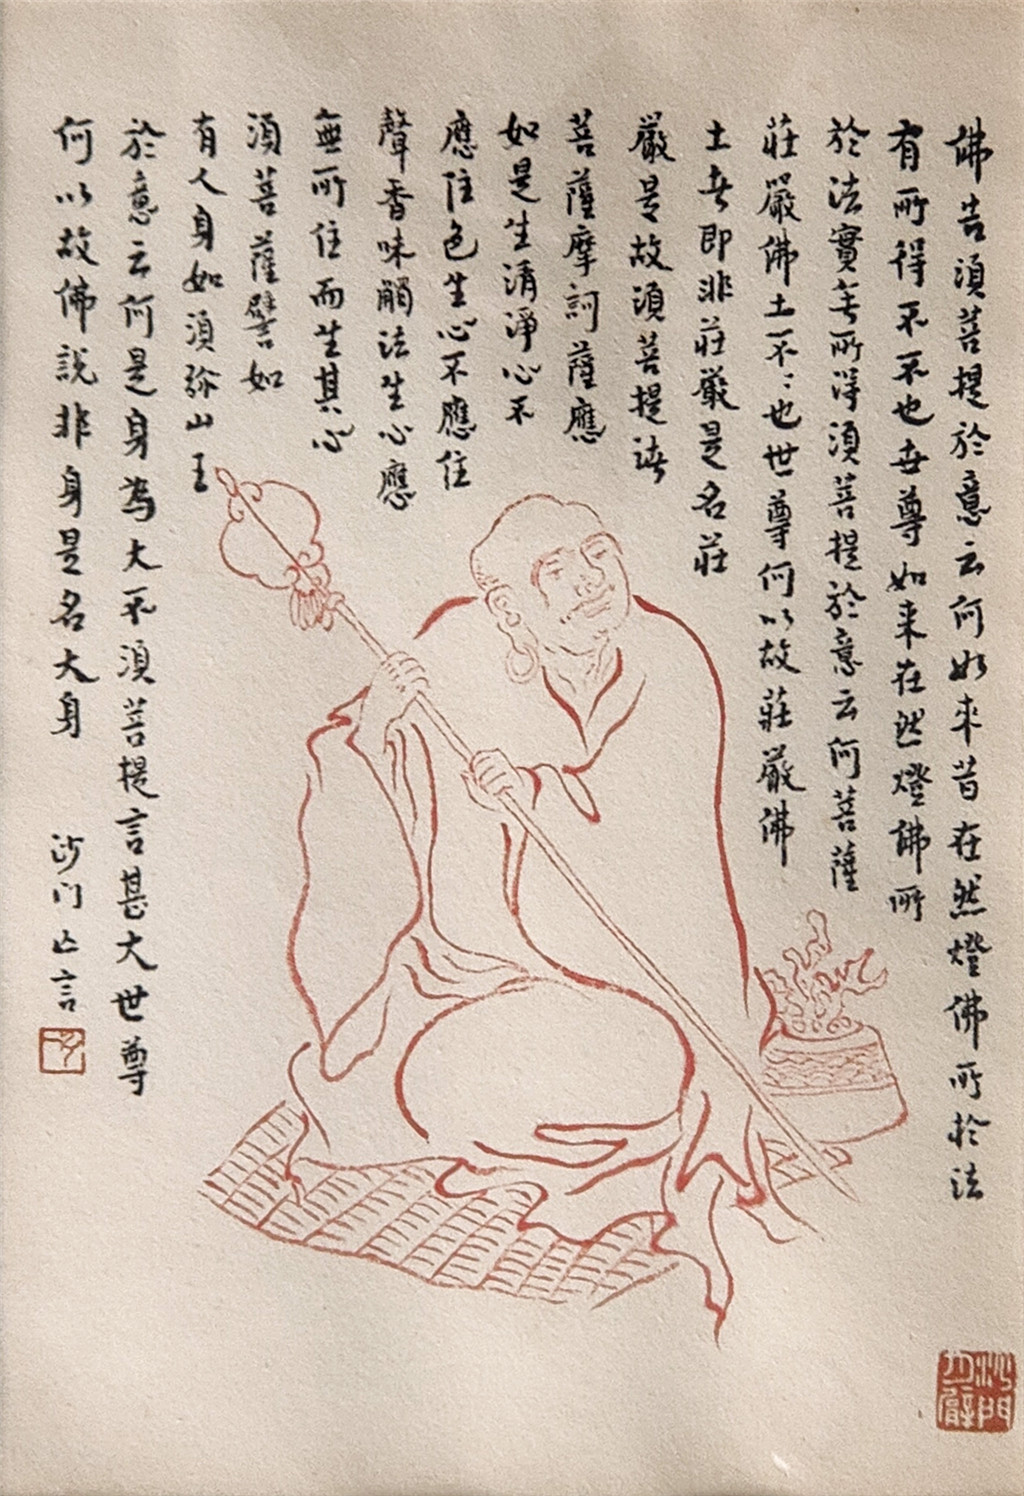 佛告須菩提於意云何如來昔在然燈佛所於法
有所得不不也世尊如来在然燈佛所
於法實无所得須菩提於意云何菩薩
莊嚴佛土不〻也世尊何以故莊嚴佛
土者即非莊嚴是名莊
嚴是故須菩提諸
菩薩摩訶薩應
如是生清淨心不
應住色生心不應住
聲香味觸法生心應
無所住而生其心
須菩薩譬如
有人身如須弥山王
於意云何是身為大不須菩提言甚大世尊
何以故佛說非身是名大身
沙门 言
沙門